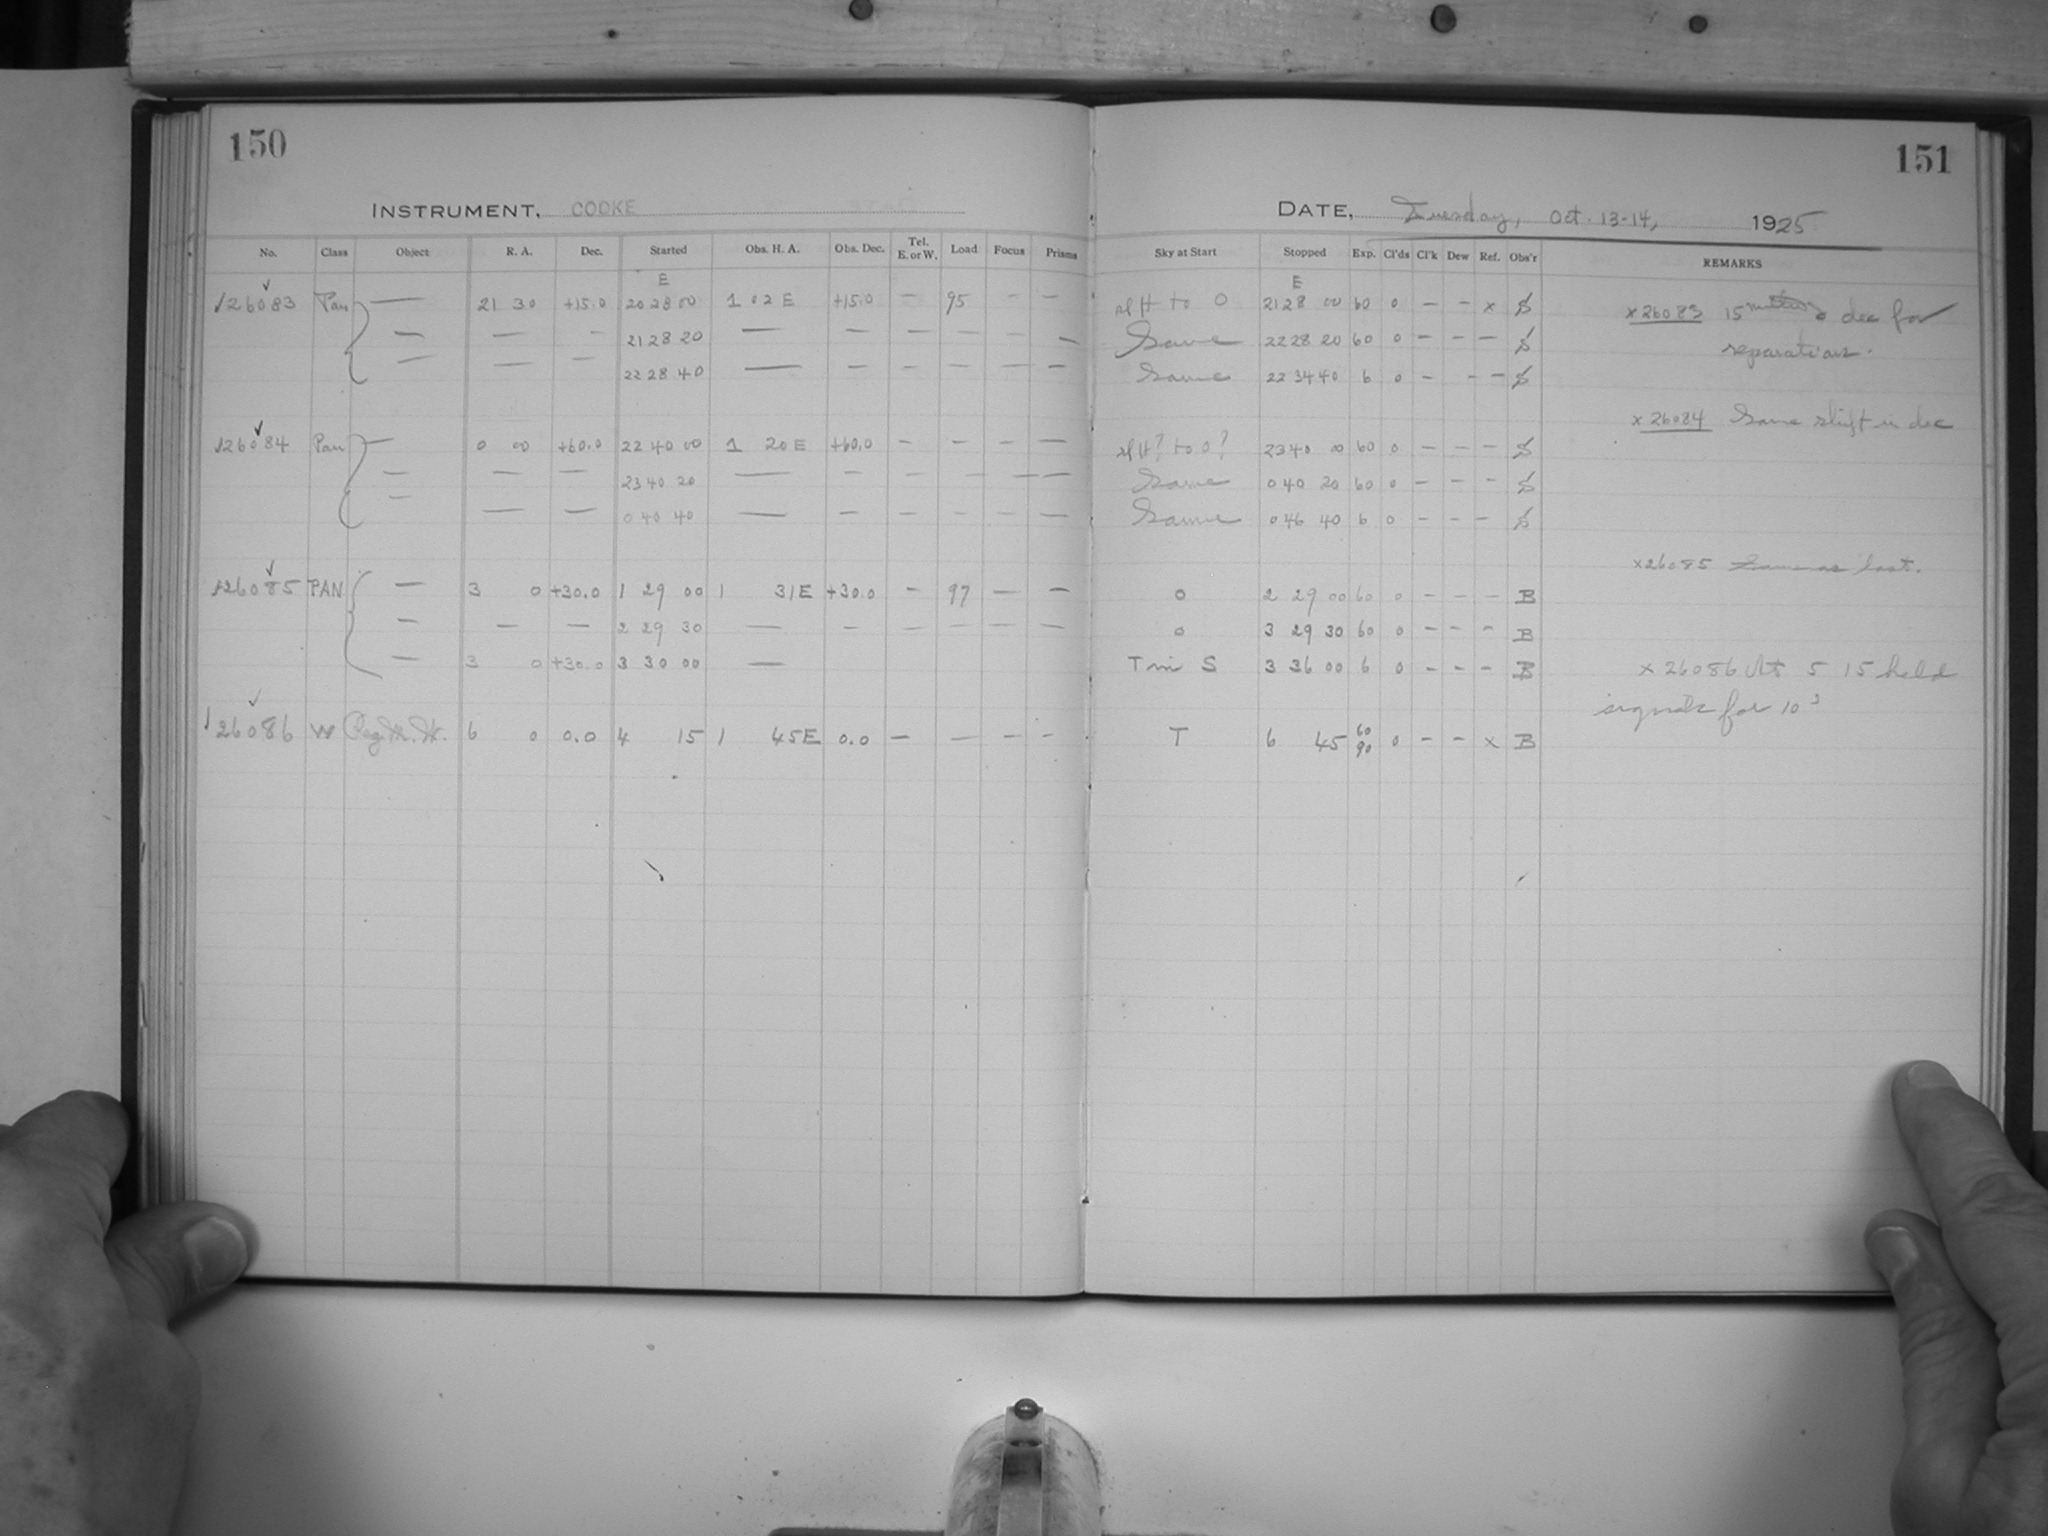 150
INSTRUMENT, COOKE
No. Class Object R. A. Dec. Started Obs. H. A. Obs. Dec. Tel. E. or W. Load Focus Prisms
E
26083 Pan — 21 30 +15.0 20 28 00 1 02 E +15.0 — 95 — —
— — — 21 28 20 — — — — — —
— — — 22 28 40 — — — — — —
26084 Pan — 0 00 +60.0 22 40 00 1 20 E +60.0 — — — —
— — — 23 40 20 — — — — — —
— — — 0 40 40 — — — — — —
26085 PAN — 3 0 +30.0 1 29 00 1 31 E +30.0 — 97 — —
— — — 2 29 30 — — — — — —
— 3 0 +30.0 3 30 00 —
26086 W 6 0 0.0 4 15 1 45 E 0.0 — — — —
151
DATE, Tuesday, Oct. 13-14, 1925
Sky at Start Stopped Exp. Cl'ds Cl'k Dew Ref. Obs'r REMARKS
E
to 0 21 28 00 60 0 — — x S
Same 22 28 20 60 0 — — — S
Same 22 34 40 6 0 — — — S
to 0? 23 40 00 60 0 — — — S
Same 0 40 20 60 0 — — — S
Same 0 46 40 6 0 — — — S
0 2 29 00 60 0 — — — B
0 3 29 30 60 0 — — — B
T in S 3 36 00 6 0 — — — B
T 6 45 60 90 0 — — x B
x 26083 15 dec for
separation.
x 26084 Same shift in dec
x 26085 Same as last.
x 26086 At 5 15 held
signals for 10